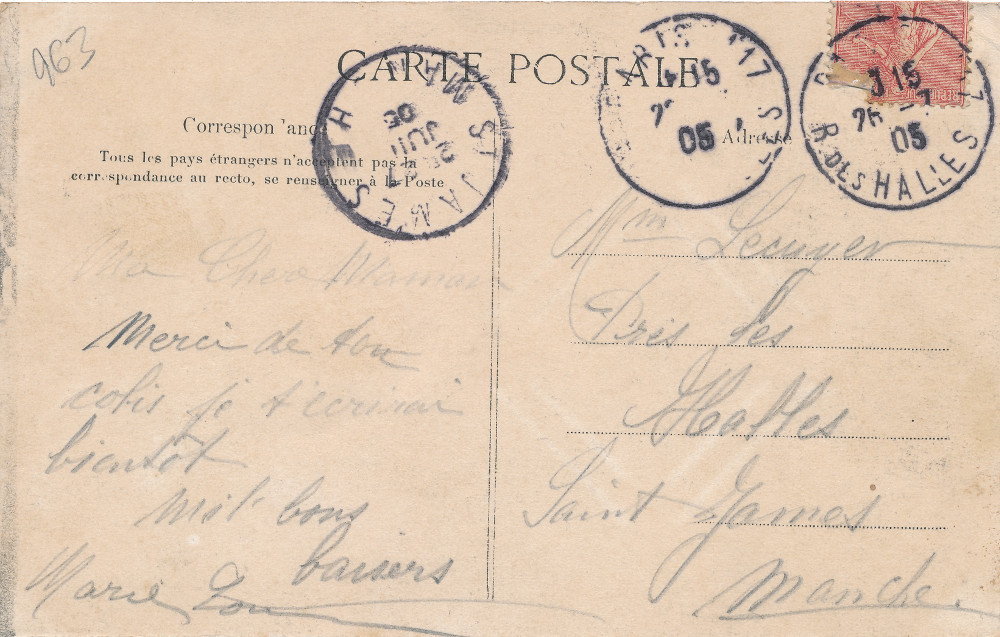 963
CARTE POSTALE
Correspon'anc
Adresse
Tous les pays étrangers n'acceptent pas la
correspondance au recto, se renseigner à la Poste
ST JAMES
MANCHE
JUIL
05
PARIS 117
4 15
05
3 15
26
05
R. DES HALLES
REPUB
Ma Chere Maman
Merci de ton
colis je t'ecrirai
bientôt
mil' bons
baisers
Marie Lou
Mme Lecuyer
Près les
Halles
Saint James
Manche.